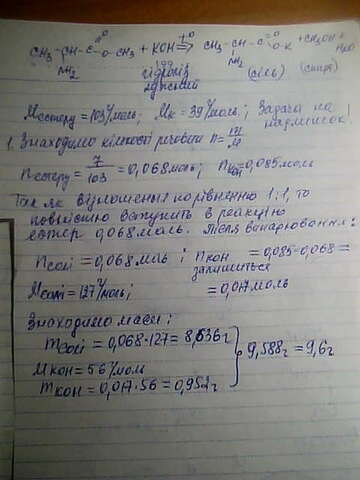 CH₃-CH-C=O O-CH₃ + KOH t° ⇒ CH₃-CH-C=O O-K + CH₃OH + H₂O
NH₂ гідроліз NH₂ (сіль) (спирт)
лужний
M естеру = 103 г/моль; Mк = 39 г/моль; Задача на
надлишок!
1. Знаходимо кількості речовин n = m/M
n естеру = 7/103 = 0,068 моль; n KOH = 0,085 моль
Так як відношення порівнянню 1:1, то
повністю вступить в реакцію
естер 0,068 моль. Після випаровування:
n солі = 0,068 моль; n KOH = 0,085-0,068 =
залишиться
M солі = 127 г/моль; = 0,017 моль
Знаходимо маси:
m солі = 0,068·127 = 8,636 г
M KOH = 56 г/моль
m KOH = 0,017·56 = 0,952 г
9,588 г = 9,6 г